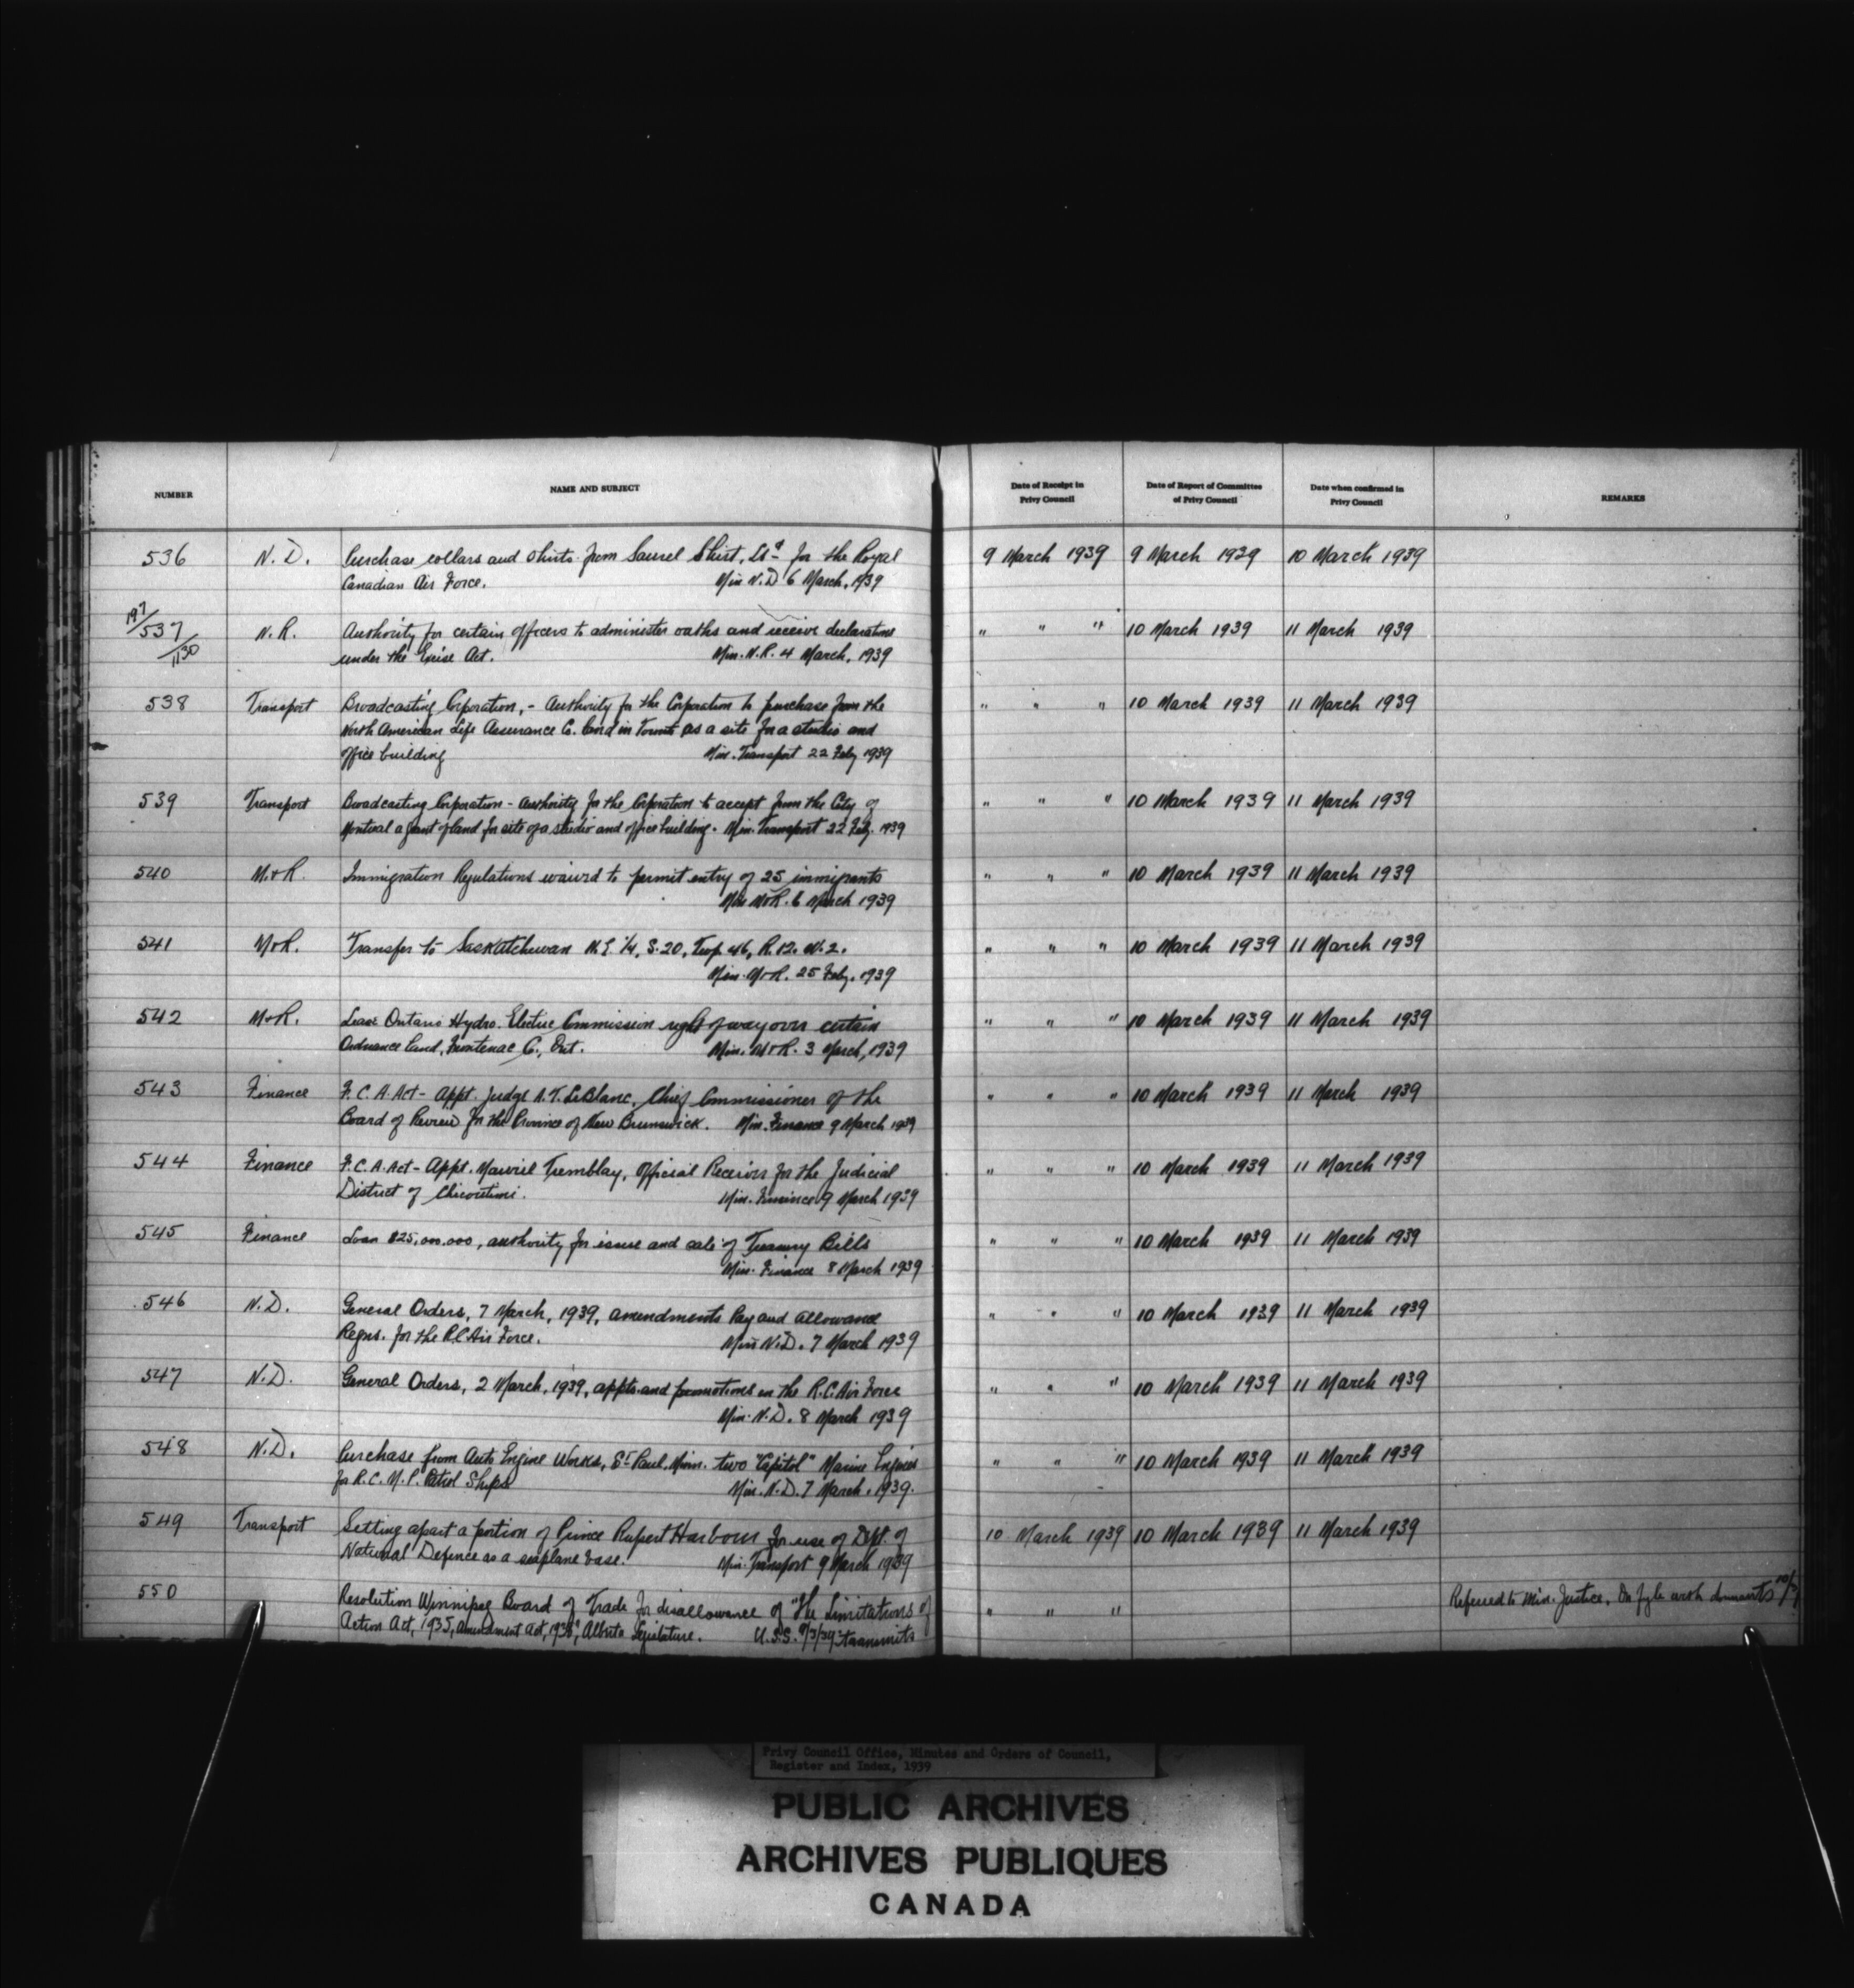 NUMBER NAME AND SUBJECT Date of Receipt in Privy Council Date of Report of Committee of Privy Council Date when confirmed in Privy Council REMARKS
536 N. D. Purchase collars and shirts from Saurel Shirt, Ltd for the Royal 9 March 1939 9 March 1939 10 March 1939
Canadian Air Force. Min N.D 6 March, 1939
197/537/1130 N.R. Authority for certain officers to administer oaths and receive declarations " " " 10 March 1939 11 March 1939
under the Excise Act. Min. N.R. 4 March, 1939
538 Transport Broadcasting Corporation, - Authority for the Corporation to purchase from the " " " 10 March 1939 11 March 1939
North American Life Assurance Co. land in Toronto as a site for a studio and
office building Min. Transport 22 Feby 1939
539 Transport Broadcasting Corporation - authority for the Corporation to accept from the City of " " " 10 March 1939 11 March 1939
Montreal a grant of land for site of a studio and office building. Min. Transport 22 Feby. 1939
540 M.+R. Immigration Regulations waived to permit entry of 25 immigrants " " " 10 March 1939 11 March 1939
Min M+R. 6 March 1939
541 M+R. Transfer to Saskatchewan N.E. 1/4, S.20, Twp. 46, R.12. W.2. " " " 10 March 1939 11 March 1939
Min. M+R. 25 Feby. 1939
542 M+R. Lease Ontario Hydro. Electric Commission right of way over certain " " " 10 March 1939 11 March 1939
Ordnance land, Frontenac Co., Ont. Min. M+R. 3 March, 1939
543 Finance F.C.A. Act - Appt. Judge A.T. LeBlanc, Chief Commissioner of the " " " 10 March 1939 11 March 1939
Board of Review for the Province of New Brunswick. Min. Finance 9 March 1939
544 Finance F.C.A. Act - Appt. Maurice Tremblay, Official Receiver for the Judicial " " " 10 March 1939 11 March 1939
District of Chicoutimi. Min. Finance 9 March 1939
545 Finance Loan $25,000.000, authority for issue and sale of Treasury Bills " " " 10 March 1939 11 March 1939
Min. Finance 8 March 1939
546 N.D. General Orders, 7 March, 1939, amendments Pay and Allowance " " " 10 March 1939 11 March 1939
Regns. for the R.C. Air Force. Min N.D. 7 March 1939
547 N.D. General Orders, 2 March, 1939, appts. and promotions in the R.C. Air Force " " " 10 March 1939 11 March 1939
Min. N.D. 8 March 1939
548 N.D. Purchase from Auto Engine Works, St Paul, Minn. two "Capitol" Marine Engines " " " 10 March 1939 11 March 1939
for R.C.M.P. Patrol Ships Min. N.D. 7 March. 1939.
549 Transport Setting apart a portion of Prince Rupert Harbour for use of Dept. of 10 March 1939 10 March 1939 11 March 1939
National Defence as a seaplane base. Min. Transport 9 March 1939
550 Resolution Winnipeg Board of Trade for disallowance of "The Limitations of " " " Referred to Min. Justice. On fyle with documents
Action Act, 1935, Amendment Act, 1938", Alberta Legislature. U.S.S. 9/3/39 transmits
Privy Council Office, Minutes and Orders of Council,
Register and Index, 1939
PUBLIC ARCHIVES
ARCHIVES PUBLIQUES
CANADA